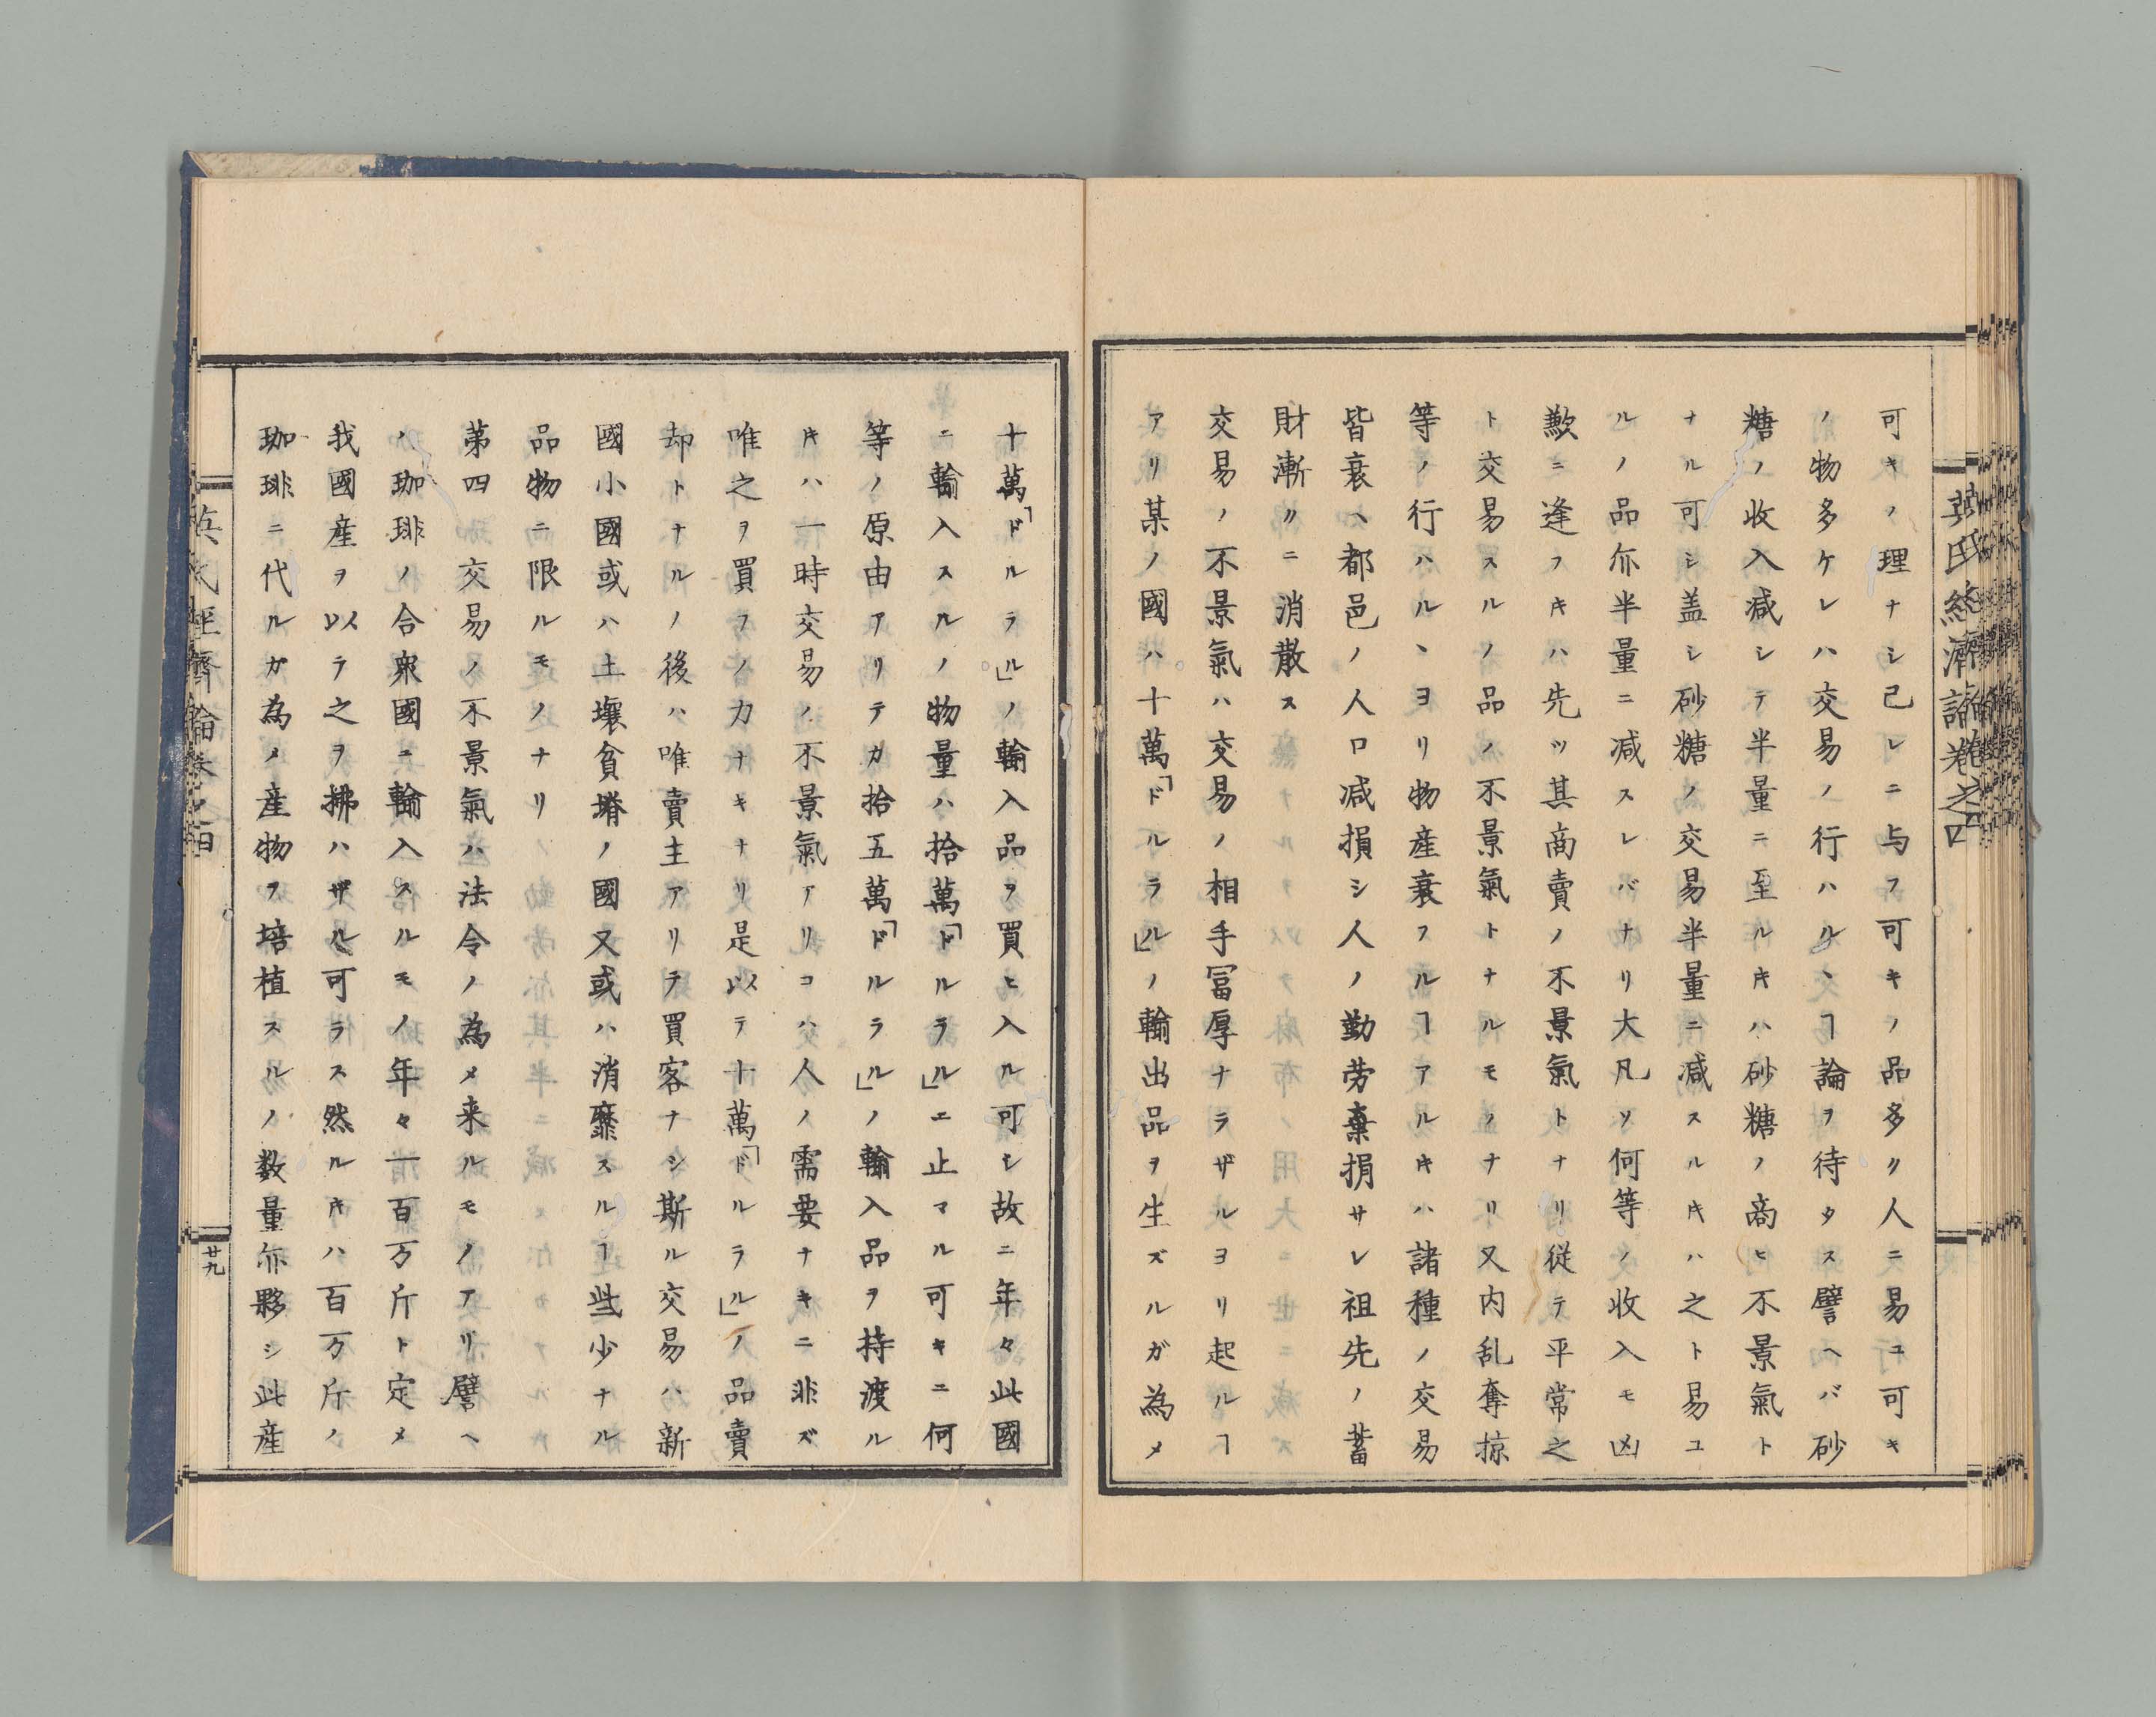 英氏経濟論卷之四
可キノ理ナシ己レニ与フ可キノ品多ク人ニ易ユ可キ
ノ物多ケレハ交易ノ行ハルヽヿ論ヲ待タス譬ヘバ砂
糖ノ收入减シテ半量ニ至ルキハ砂糖ノ商ヒ不景氣ト
ナル可シ盖シ砂糖ノ交易半量ニ减スルキハ之ト易ユ
ルノ品亦半量ニ减スレバナリ大凡ソ何等ノ收入モ凶
歉ニ逢フキハ先ツ其商賣ノ不景氣トナリ従テ平常之
ト交易スルノ品ノ不景氣トナルモノナリ又内乱奪掠
等ノ行ハルヽヨリ物産衰フルヿアルキハ諸種ノ交易
皆衰ヘ都邑ノ人口减損シ人ノ勤労棄捐サレ祖先ノ蓄
財漸〃ニ消散ス
交易ノ不景氣ハ交易ノ相手冨厚ナラザルヨリ起ルヿ
アリ某ノ國ハ十萬「ドルラル」ノ輸出品ヲ生ズルガ為メ
十萬「ドルラル」ノ輸入品ヲ買ヒ入ル可シ故ニ年々此國
ニ輸入スルノ物量ハ拾萬「ドルラル」ニ止マル可キニ何
等ノ原由アリテカ拾五萬「ドルラル」ノ輸入品ヲ持渡ル
キハ一時交易ノ不景氣アリコハ人ノ需要ナキニ非ズ
唯之ヲ買フノ力ナキナリ是以テ十萬「ドルラル」ノ品賣
却トナルノ後ハ唯賣主アリテ買客ナシ斯ル交易ハ新
國小國或ハ土壤貧瘠ノ國又或ハ消靡スルヿ些少ナル
品物ニ限ルモノナリ
苐四 交易ノ不景氣ハ法令ノ為メ来ルモノアリ譬ヘ
ハ珈琲ノ合衆國ニ輸入スルモノ年々一百万斤ト定メ
我國産ヲ以テ之ヲ拂ハザル可ラス然ルキハ百万斤ノ
珈琲ニ代ルガ為メ産物ヲ培植スルノ数量亦夥シ此産
英氏経濟論卷之四
廿九